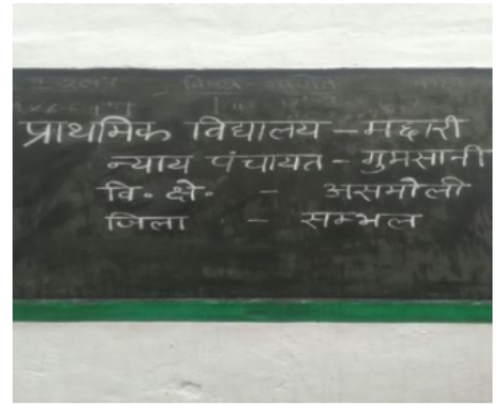 प्राथमिक विद्यालय - मद्दारी
न्याय पंचायत - गुमसानी
वि॰ क्षे॰ - असमोली
जिला - सम्भल